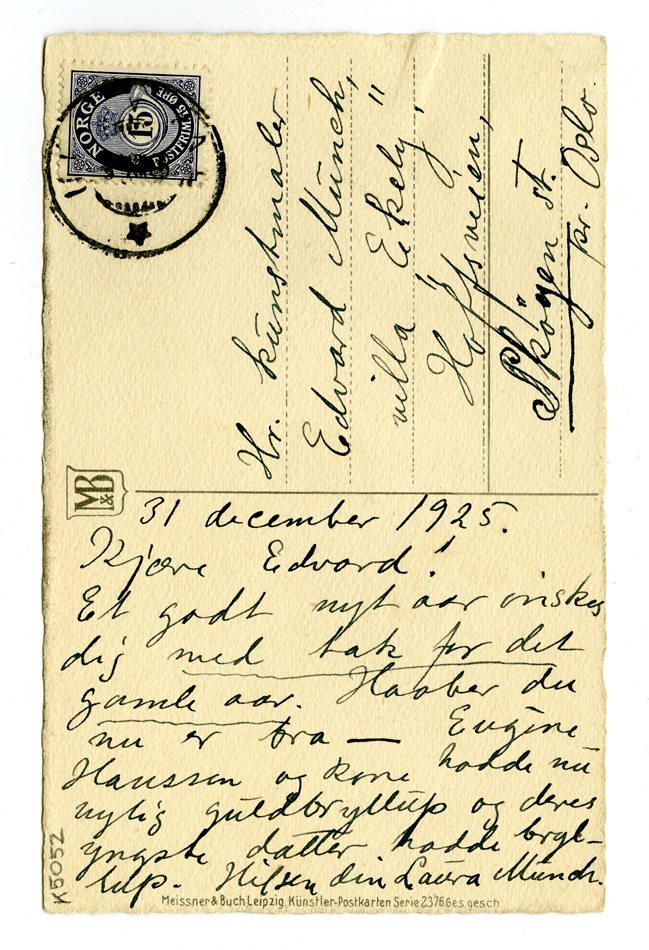 NORGE
15
POSTFRIM. 15 ØRE
Hr. kunstmaler
Edvard Munch,
villa "Ekely",
Hoffsveien,
Skøyen st.
pr. Oslo.
M&B
31 december 1925.
Kjære Edvard!
Et godt nyt aar ønskes
dig med tak for det
gamle aar. Haaber du
nu er bra — Eugène
Hanssen og kone hadde nu
nylig guldbryllup og deres
yngste datter hadde bryl-
lup. Hilsen din Laura Munch.
K5052
Meissner & Buch, Leipzig. Künstler-Postkarten Serie 2376. Ges. gesch.